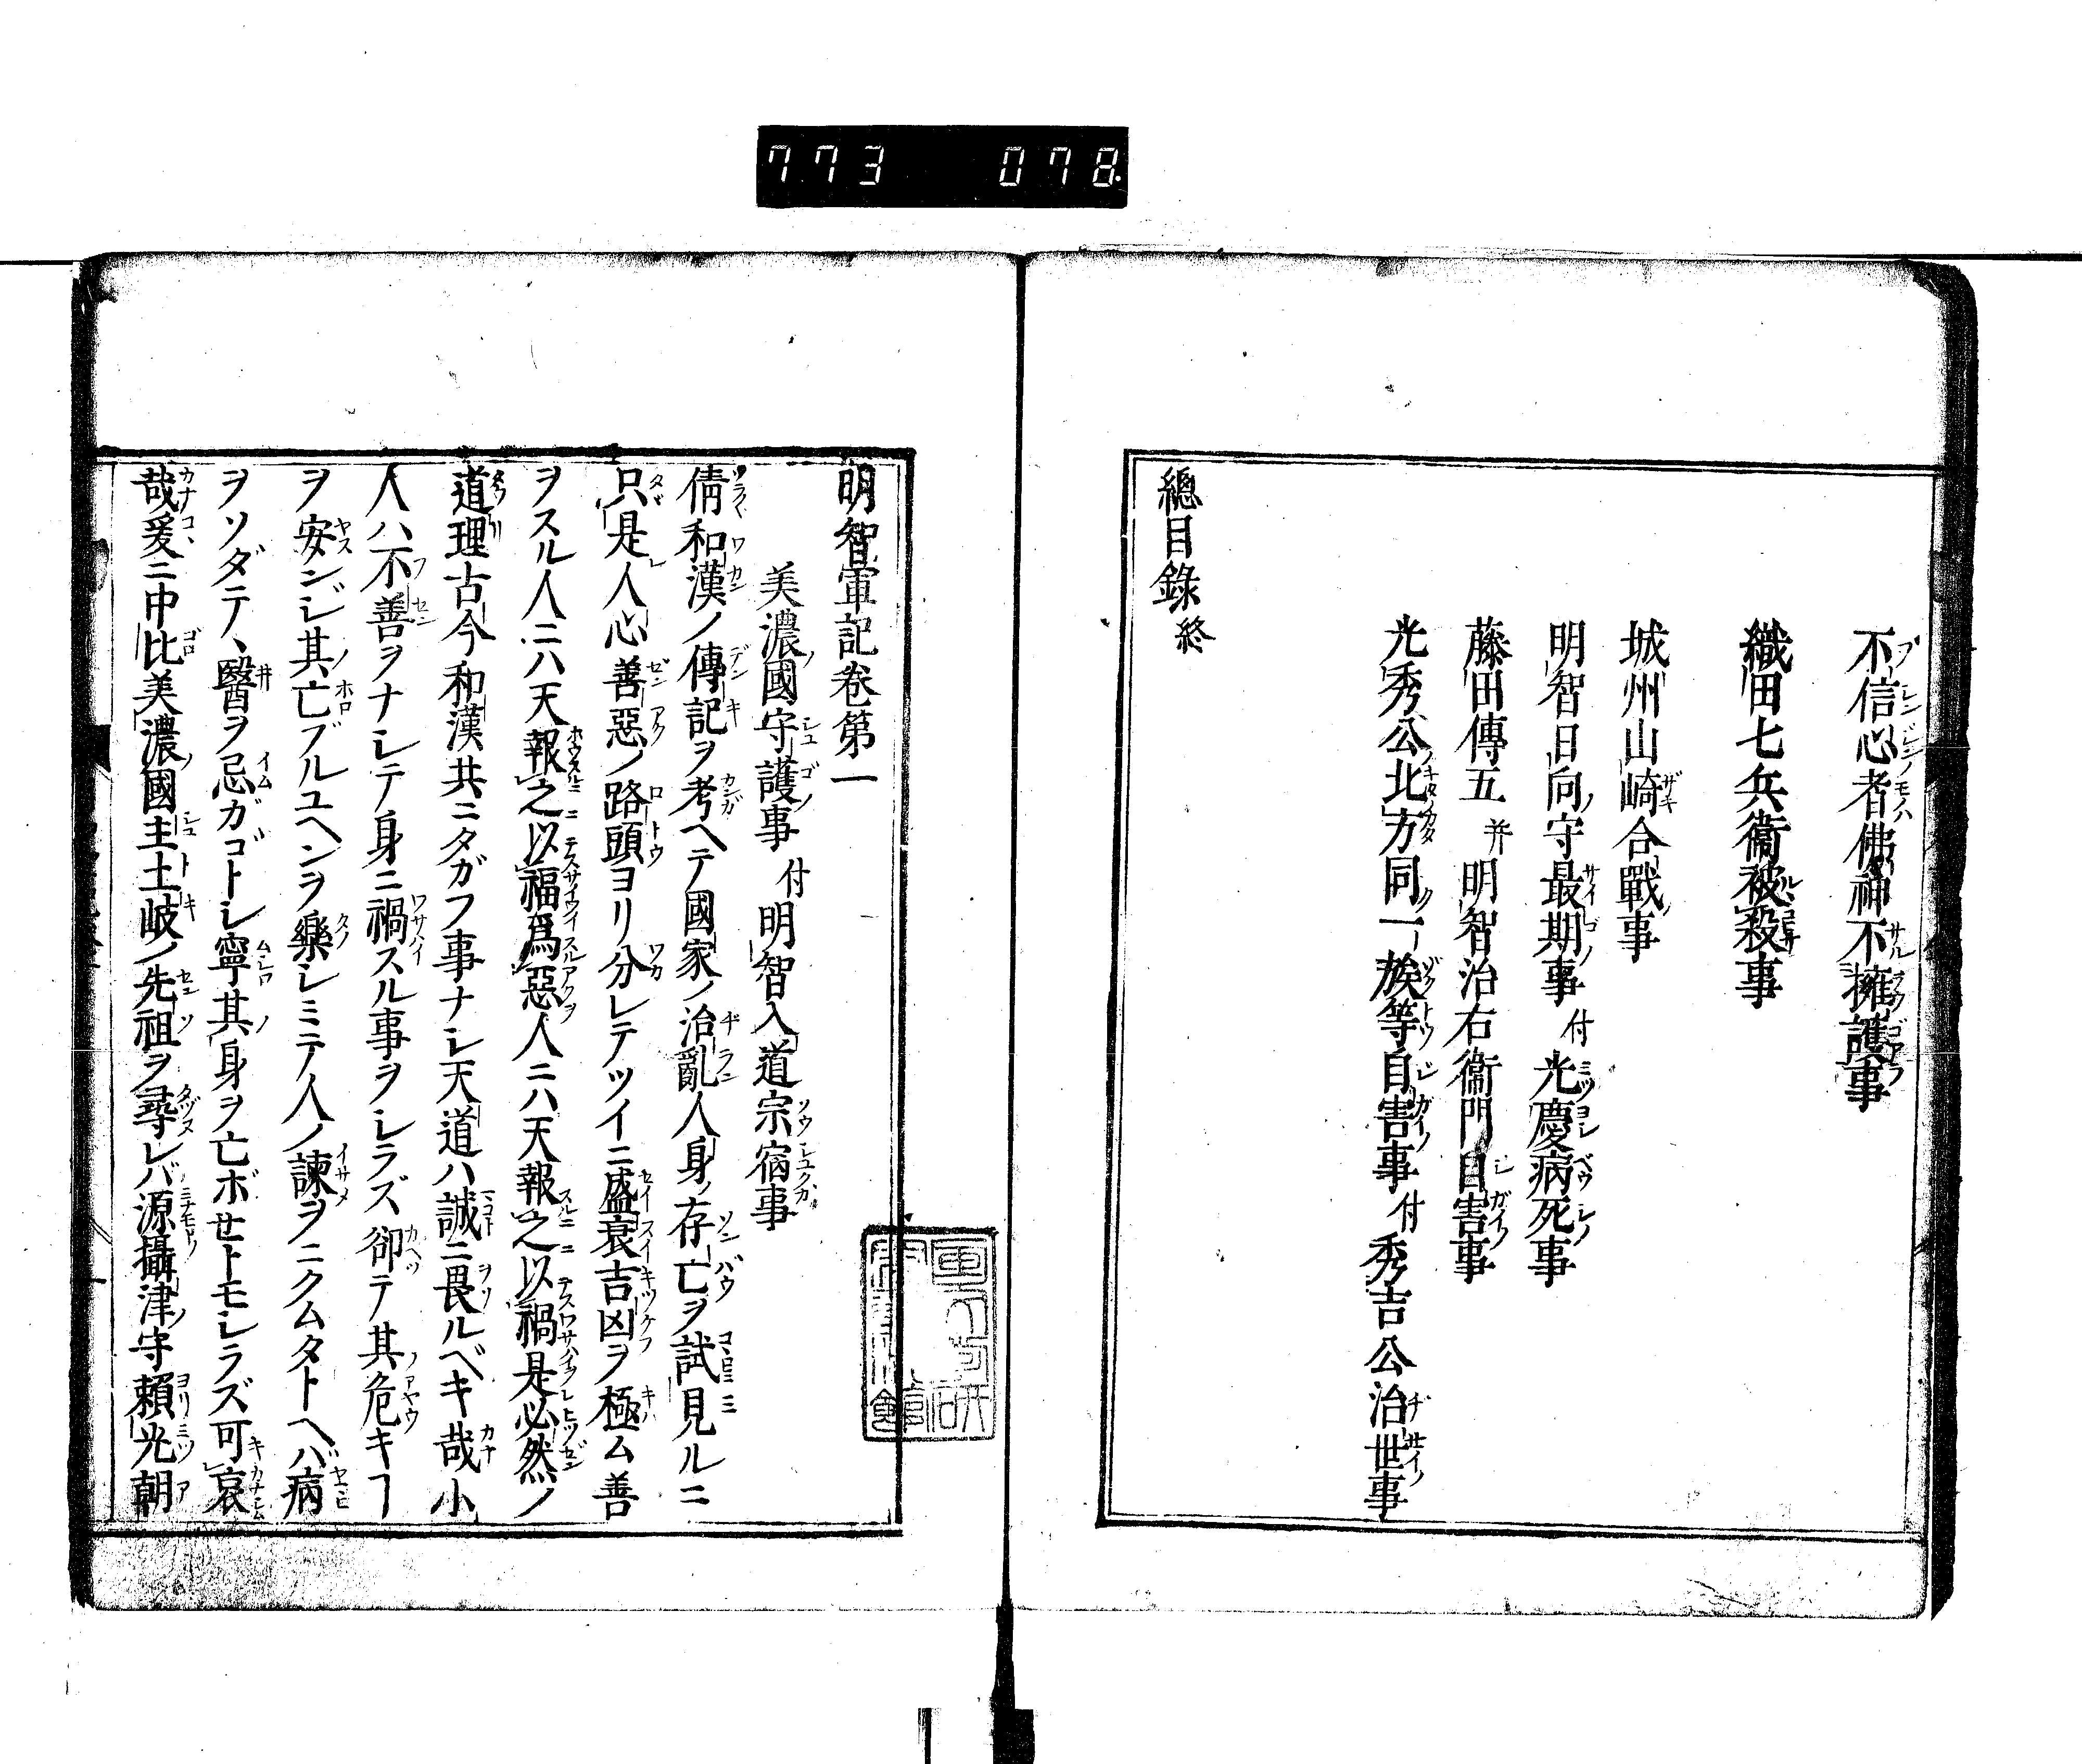 773 078
不信心者佛神不擁護事
織田七兵衞被殺事
城州山崎合戰事
明智日向守最期事 付 光慶病死事
藤田傳五 并 明智治右衞門自害事
光秀公北方同一族等自害事 付 秀吉公治世事
總目錄 終
明智軍記卷第一
美濃國守護事 付 明智入道宗宿事
倩和漢ノ傳記ヲ考ヘテ國家ノ治亂人身ノ存亡ヲ試見ルニ
只是人心善惡ノ路頭ヨリ分レテツイニ盛衰吉凶ヲ極ム善
ヲスル人ニハ天報之以福爲惡人ニハ天報之以禍是必然ノ
道理古今和漢共ニタガフ事ナシ天道ハ誠ニ畏ルベキ哉小
人ハ不善ヲナシテ身ニ禍スル事ヲシラズ卻テ其危キヿ
ヲ安ンジ其亡ブルユヘンヲ樂シミテ人ノ諫ヲニクムタトヘバ病
ヲソダテヽ醫ヲ忌ガゴトシ寧其身ヲ亡ボセトモシラズ可哀
哉爰ニ中比美濃國主土岐ノ先祖ヲ尋レバ源攝津守賴光朝